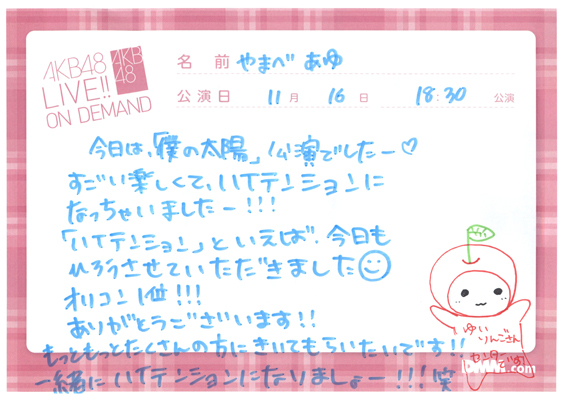 AKB48
LIVE!!
ON DEMAND
AKB
48
名 前 やまべ あゆ
公演日 11月 16日 18:30 公演
今日は、「僕の太陽」公演でしたー♡
すごい楽しくて、ハイテンションに
なっちゃいましたー!!!
「ハイテンション」といえば、今日も
ひろうさせていただきました☺
オリコン1位!!!
ありがとうございます!!
もっともっとたくさんの方にきいてもらいたいです!!
一緒にハイテンションになりましょー!!!笑
ゆいりんごさん
センター
DMM.com